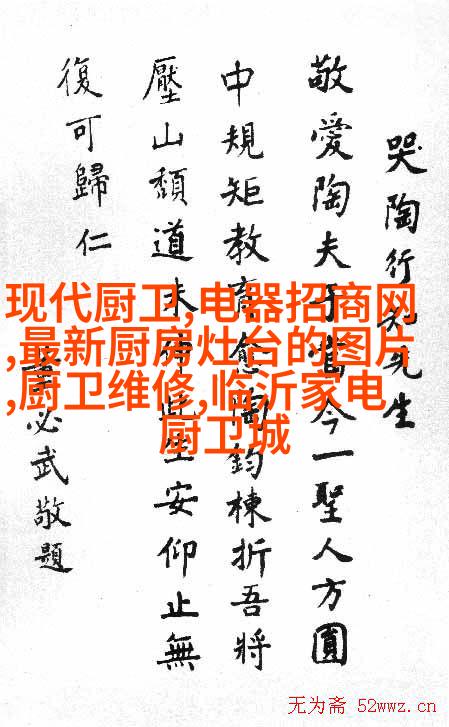 哭陶行知先生
敬愛陶夫子當今一聖人方圓
中規矩教育愈陶鈞棟折吾將
壓山頹道未此生安仰止無
復可歸仁
董必武敬題
现代厨卫,电器招商网
,最新厨房灶台的图片
,厨卫维修,临沂家电
厨卫城
无为斋 52wwz.cn